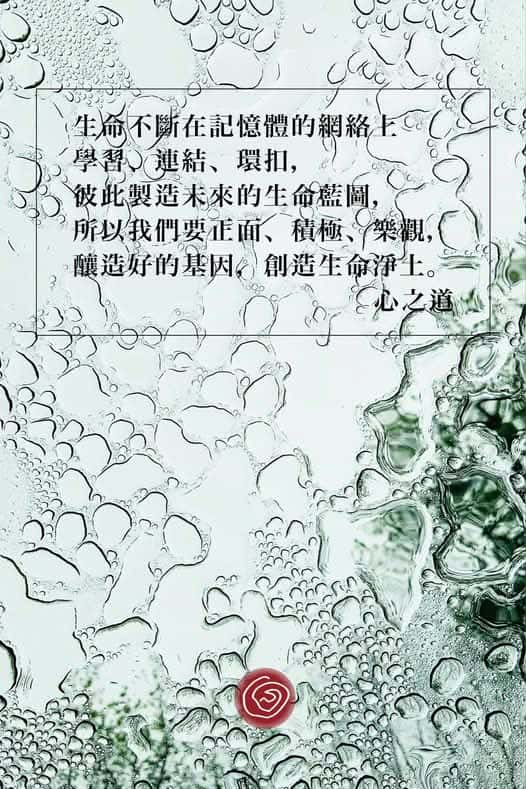 生命不斷在記憶體的網絡上
學習、連結、環扣，
彼此製造未來的生命藍圖，
所以我們要正面、積極、樂觀，
釀造好的基因，創造生命淨土。
心之道